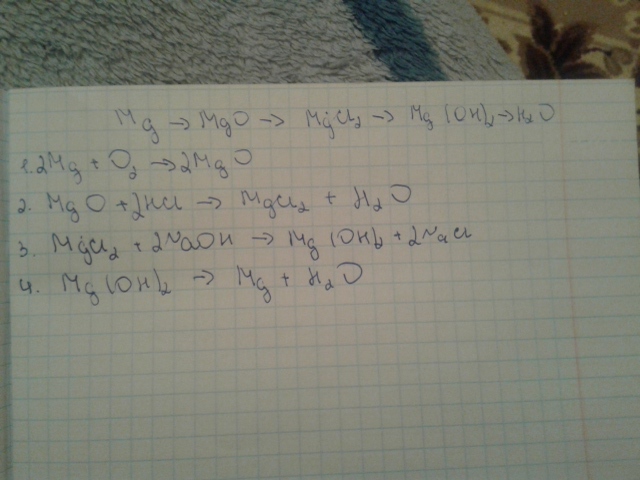 Mg → MgO → MgCl₂ → Mg(OH)₂ → H₂O
1. 2Mg + O₂ → 2MgO
2. MgO + 2HCl → MgCl₂ + H₂O
3. MgCl₂ + 2NaOH → Mg(OH)₂ + 2NaCl
4. Mg(OH)₂ → Mg + H₂O